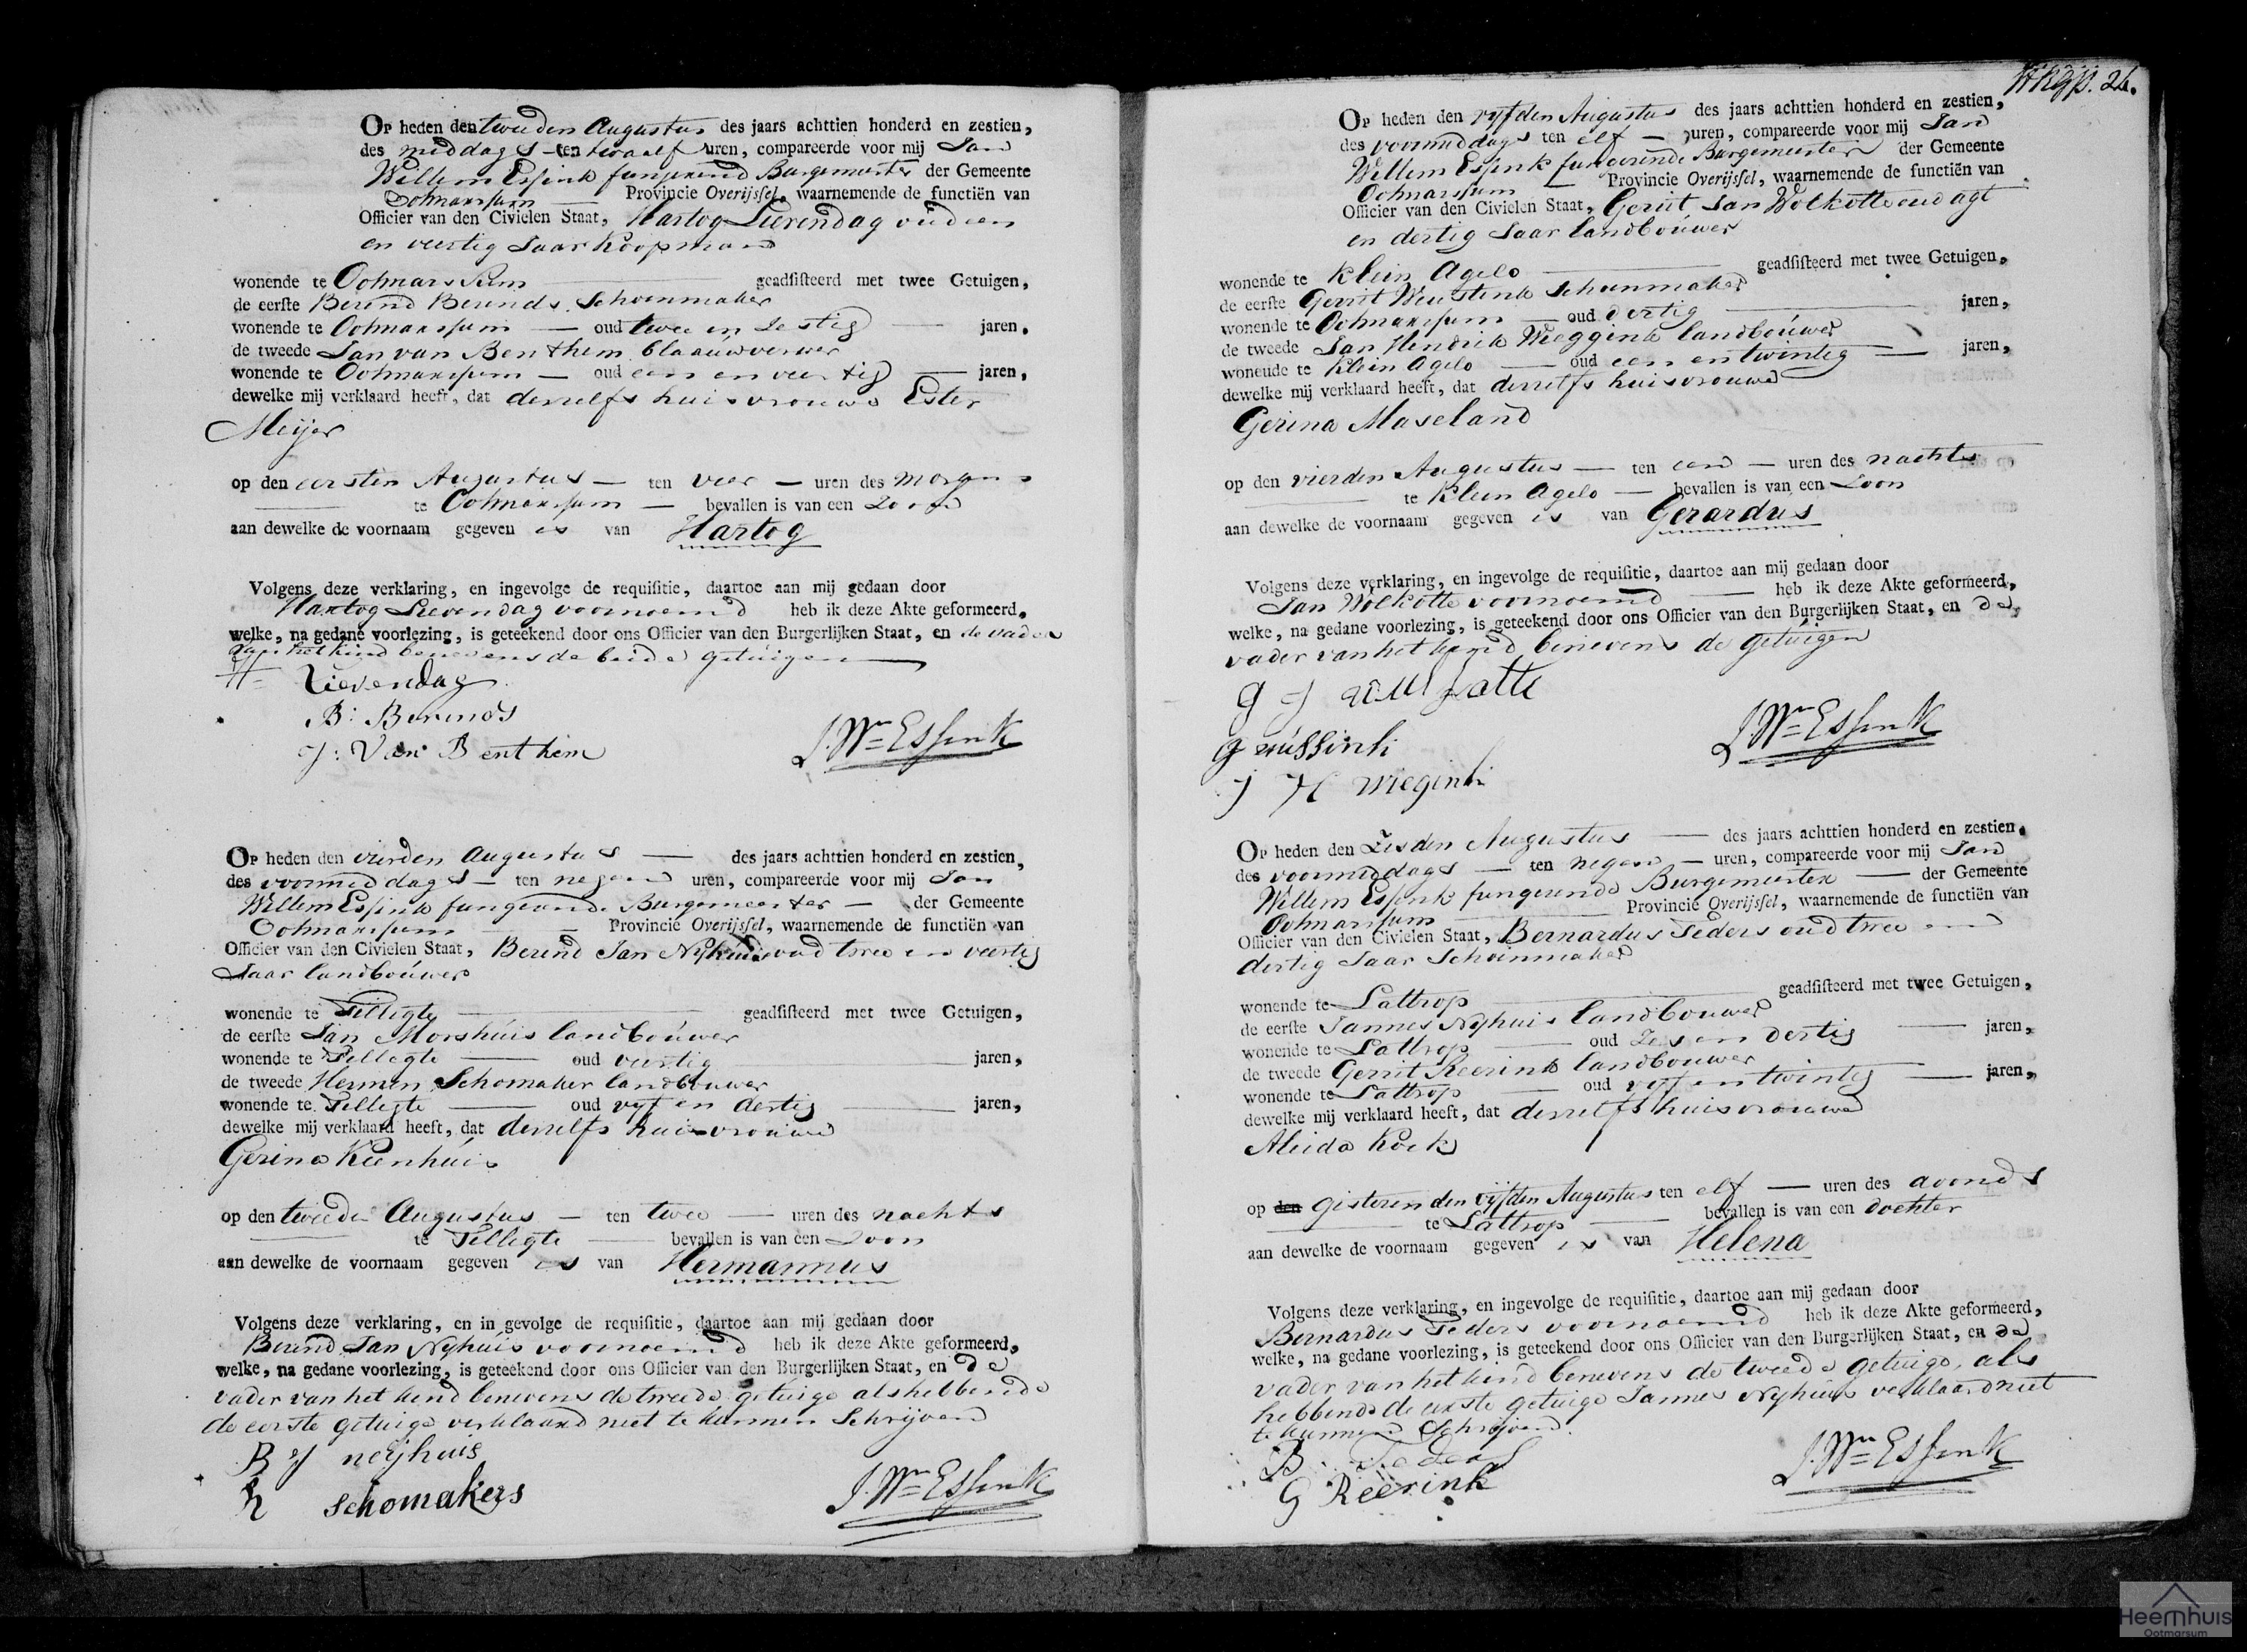 Op heden den tweeden Augustus des jaars achttien honderd en zestien,
des middags ten twaalf uren, compareerde voor mij Jan
Willem Essink fungerend Burgemeester der Gemeente
Ootmarssum — Provincie Overijssel, waarnemende de functiën van
Officier van den Civielen Staat, Hartog Lievendag oud een
en veertig Jaar Koopman
wonende te Ootmarssum — geadsisteerd met twee Getuigen,
de eerste Berend Berends Schoenmaker
wonende te Ootmarssum — oud twee en Zestig — jaren,
de tweede Jan van Benthem blaauwverwer
wonende te Ootmarssum — oud een en veertig — jaren,
dewelke mij verklaard heeft, dat deszelfs huisvrouwe Ester
Meijer
op den eersten Augustus — ten vier — uren des morgens
— te Ootmarssum — bevallen is van een Zoon
aan dewelke de voornaam gegeven is van Hartog
Volgens deze verklaring, en ingevolge de requisitie, daartoe aan mij gedaan door
Hartog Lievendag voornoemd heb ik deze Akte geformeerd,
welke, na gedane voorlezing, is geteekend door ons Officier van den Burgerlijken Staat, en de vader
van het kind benevens de beide getuigen —
H= Lievendag
B: Berends
J: Van Benthem
J. Wm= Essink
Op heden den vierden Augustus — des jaars achttien honderd en zestien,
des voormiddags — ten negen uren, compareerde voor mij Jan
Willem Essink fungerende Burgemeester — der Gemeente
Ootmarssum — Provincie Overijssel, waarnemende de functiën van
Officier van den Civielen Staat, Berend Jan Nyhuis oud twee en veertig
Jaar landbouwer
wonende te Tilligte — geadsisteerd met twee Getuigen,
de eerste Jan Morshuis landbouwer
wonende te Tellegte — oud veertig — jaren,
de tweede Hermen Schomaker landbouwer
wonende te Tellegte — oud vyf en dertig — jaren,
dewelke mij verklaard heeft, dat deszelfs huisvrouwe
Gerina Kienhuis
op den tweeden Augustus — ten twee — uren des nachts
— te Tellegte — bevallen is van een Zoon
aan dewelke de voornaam gegeven is van Hermannus
Volgens deze verklaring, en in gevolge de requisitie, daartoe aan mij gedaan door
Berend Jan Nyhuis voornoemd heb ik deze Akte geformeerd,
welke, na gedane voorlezing, is geteekend door ons Officier van den Burgerlijken Staat, en de
vader van het kind benevens de tweede getuige als hebbende
de eerste getuige verklaard niet te kunnen Schrijven
B J neijhuis
h schomakers
J. Wm= Essink
26.
Op heden den vyfden Augustus des jaars achttien honderd en zestien,
des voormiddags ten elf — uren, compareerde voor mij Jan
Willem Essink fungerende Burgemeester der Gemeente
Ootmarssum — Provincie Overijssel, waarnemende de functiën van
Officier van den Civielen Staat, Gerrit Jan Wolkotte oud agt
en dertig Jaar landbouwer
wonende te Klein Agelo — geadsisteerd met twee Getuigen,
de eerste Gerrit Weustink Schoenmaker
wonende te Ootmarssum — oud dertig — jaren,
de tweede Jan Hendrik Weeggink landbouwer
wonende te Klein Agelo — oud een en twintig — jaren,
dewelke mij verklaard heeft, dat deszelfs huisvrouwe
Gerina Maseland
op den vierden Augustus — ten een — uren des nachts
— te Klein Agelo — bevallen is van een Zoon
aan dewelke de voornaam gegeven is van Gerardus
Volgens deze verklaring, en ingevolge de requisitie, daartoe aan mij gedaan door
Jan Wolkotte voornoemd — heb ik deze Akte geformeerd,
welke, na gedane voorlezing, is geteekend door ons Officier van den Burgerlijken Staat, en de
vader van het kind benevens de getuigen
g J
J H wiegink
J Wm= Essink
Op heden den Zesden Augustus — des jaars achttien honderd en zestien,
des voormiddags — ten negen — uren, compareerde voor mij Jan
Willem Essink fungerende Burgemeester — der Gemeente
Ootmarssum — Provincie Overijssel, waarnemende de functiën van
Officier van den Civielen Staat, Bernardus Teders oud twee en
dertig Jaar Schoenmaker
wonende te Lattrop — geadsisteerd met twee Getuigen,
de eerste Jannes Nyhuis landbouwer
wonende te Lattrop — oud Zes en dertig — jaren,
de tweede Gerrit Reerink landbouwer
wonende te Lattrop — oud vyf en twintig — jaren,
dewelke mij verklaard heeft, dat deszelfs huisvrouwe
Aleida Kock
op den gisteren den vyfden Augustus ten elf — uren des avonds
— te Lattrop — bevallen is van een dochter
aan dewelke de voornaam gegeven is van Helena
Volgens deze verklaring, en ingevolge de requisitie, daartoe aan mij gedaan door
Bernardus Teders voornoemd heb ik deze Akte geformeerd,
welke, na gedane voorlezing, is geteekend door ons Officier van den Burgerlijken Staat, en de
vader van het kind benevens de tweede getuige, als
hebbende de eerste getuige Jannes Nyhuis verklaard niet
te kunnen Schrijven.
B. Teders
G Reerink
J. Wm= Essink
Heemhuis
Ootmarsum